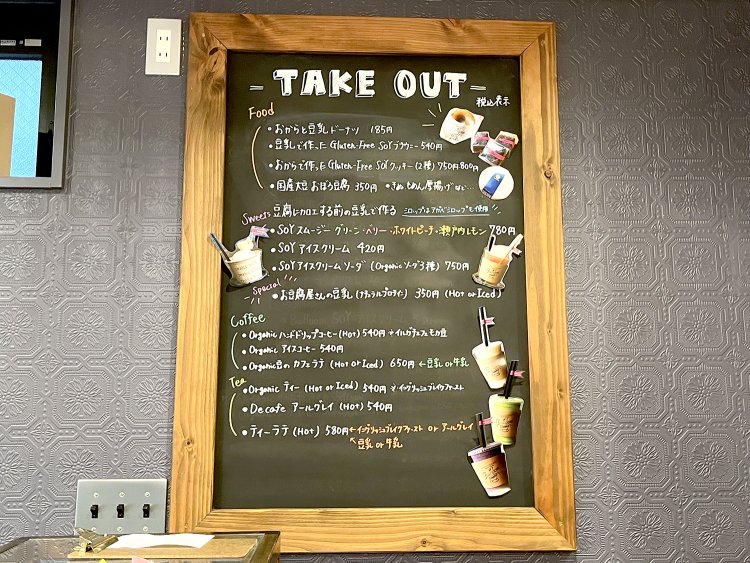 TAKE OUT
税込表示
Food
• おからと豆乳ドーナツ 185円
• 豆乳で作った Gluten-Free SOYブラウニー 540円
• おからで作った Gluten-Free SOYクッキー (2種) 750円 800円
• 国産大豆 おぼろ豆腐 350円 • きぬ、もめん、厚揚げ など…
Sweets 豆腐にカロエする前の豆乳で作る シロップはアガベシロップを使用
• SOYスムージー グリーン・ベリー・ホワイトピーチ・瀬戸内レモン 780円
• SOYアイスクリーム 420円
• SOYアイスクリームソーダ (Organicソーダ3種) 750円
Special
• お豆腐屋さんの豆乳 (ナチュラルプロテイン) 350円 (Hot or Iced)
Coffee
• Organic ハンドドリップコーヒー (Hot) 540円 イルガチェフェモカ豆
• Organic アイスコーヒー 540円
• Organic豆の カフェラテ (Hot or Iced) 650円 ←豆乳or牛乳
Tea
• Organic ティー (Hot or Iced) 540円 イングリッシュブレイクファースト
• Decafe アールグレイ (Hot) 540円
• ティーラテ (Hot) 580円 ←イングリッシュブレイクファースト or アールグレイ
豆乳 or 牛乳